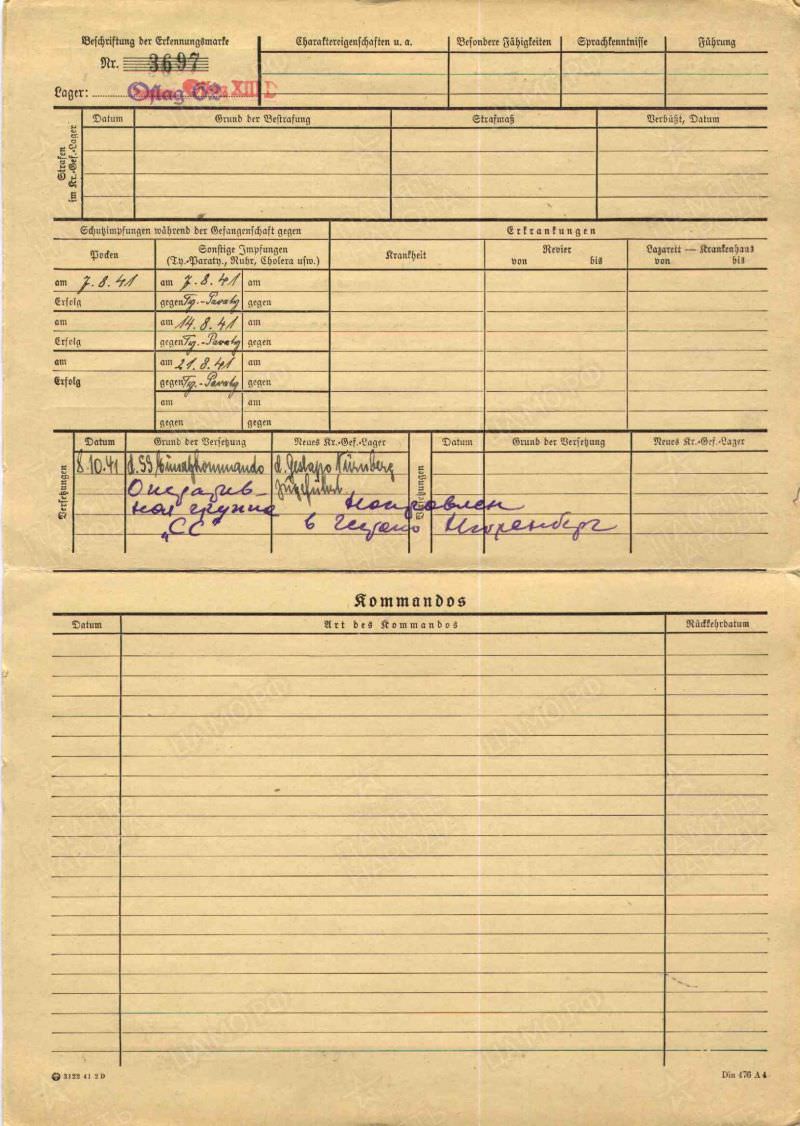 Beschriftung der Erkennungsmarke
Nr. 3697
Lager: Oflag 62 XIII D
Charaktereigenschaften u. a.
Besondere Fähigkeiten
Sprachkenntnisse
Führung
Strafen im Kr.-Gef.-Lager
Datum
Grund der Bestrafung
Strafmaß
Verbüßt, Datum
Schutzimpfungen während der Gefangenschaft gegen
Erkrankungen
Pocken
Sonstige Impfungen
(Ty.-Paraty., Ruhr, Cholera usw.)
Krankheit
Revier
von bis
Lazarett — Krankenhaus
von bis
am 7.8.41 am 7.8.41 am
Erfolg gegen Ty.-Paraty gegen
am am 14.8.41 am
Erfolg gegen Ty.-Paraty gegen
am am 21.8.41 am
Erfolg gegen Ty.-Paraty gegen
am am
gegen gegen
Versetzungen
Datum Grund der Versetzung Neues Kr.-Gef.-Lager
Versetzungen
Datum Grund der Versetzung Neues Kr.-Gef.-Lager
8.10.41 d. SS Einsatzkommando d. Gestapo Nürnberg
zugeführt.
Оператив-
ная группа Направлен
„СС" в гестапо Нюренберг
Kommandos
Datum Art des Kommandos Rückkehrdatum
3122 41 2 D
Din 476 A 4
ЦАМО РФ
ПАМЯТЬ НАРОДА